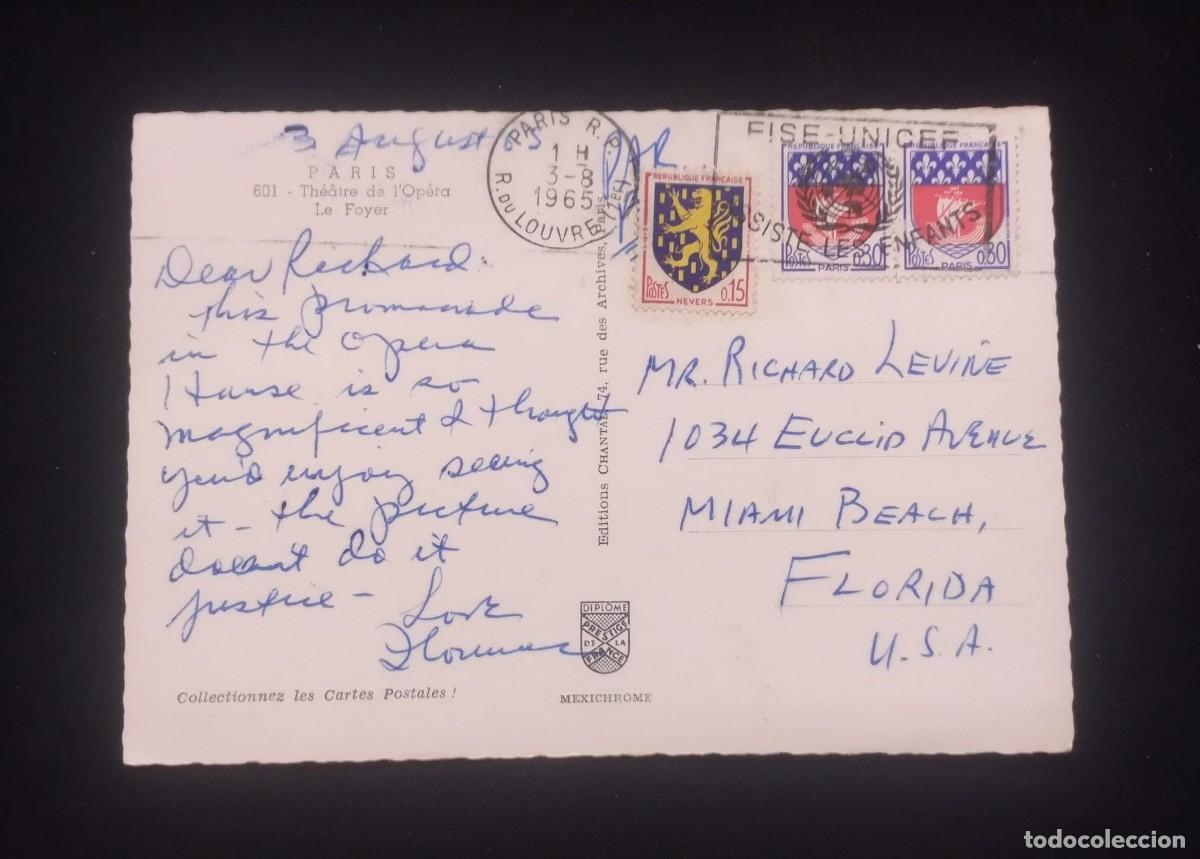 3 August
PARIS
601 - Théâtre de l'Opéra
Le Foyer
Dear Richard
this promanade
in the Opera
House is so
magnificent I thought
you'd enjoy seeing
it - the picture
doesn't do it
justice -
Love
Collectionnez les Cartes Postales !
PARIS R.P.
1 H
3-8
1965
R. DU LOUVRE (1er)
PAR
Editions CHANTAL, 74, rue des Archives, Paris
DIPLÔME
PRESTIGE
DE LA
FRANCE
MEXICHROME
FISE-UNICEF
ASSISTE LES ENFANTS
REPUBLIQUE FRANÇAISE
POSTES
NEVERS
0,15
REPUBLIQUE FRANÇAISE
POSTES
0,30
PARIS
REPUBLIQUE FRANÇAISE
POSTES
0,30
PARIS
MR. RICHARD LEVINE
1034 EUCLID AVENUE
MIAMI BEACH,
FLORIDA
U.S.A.
todocoleccion